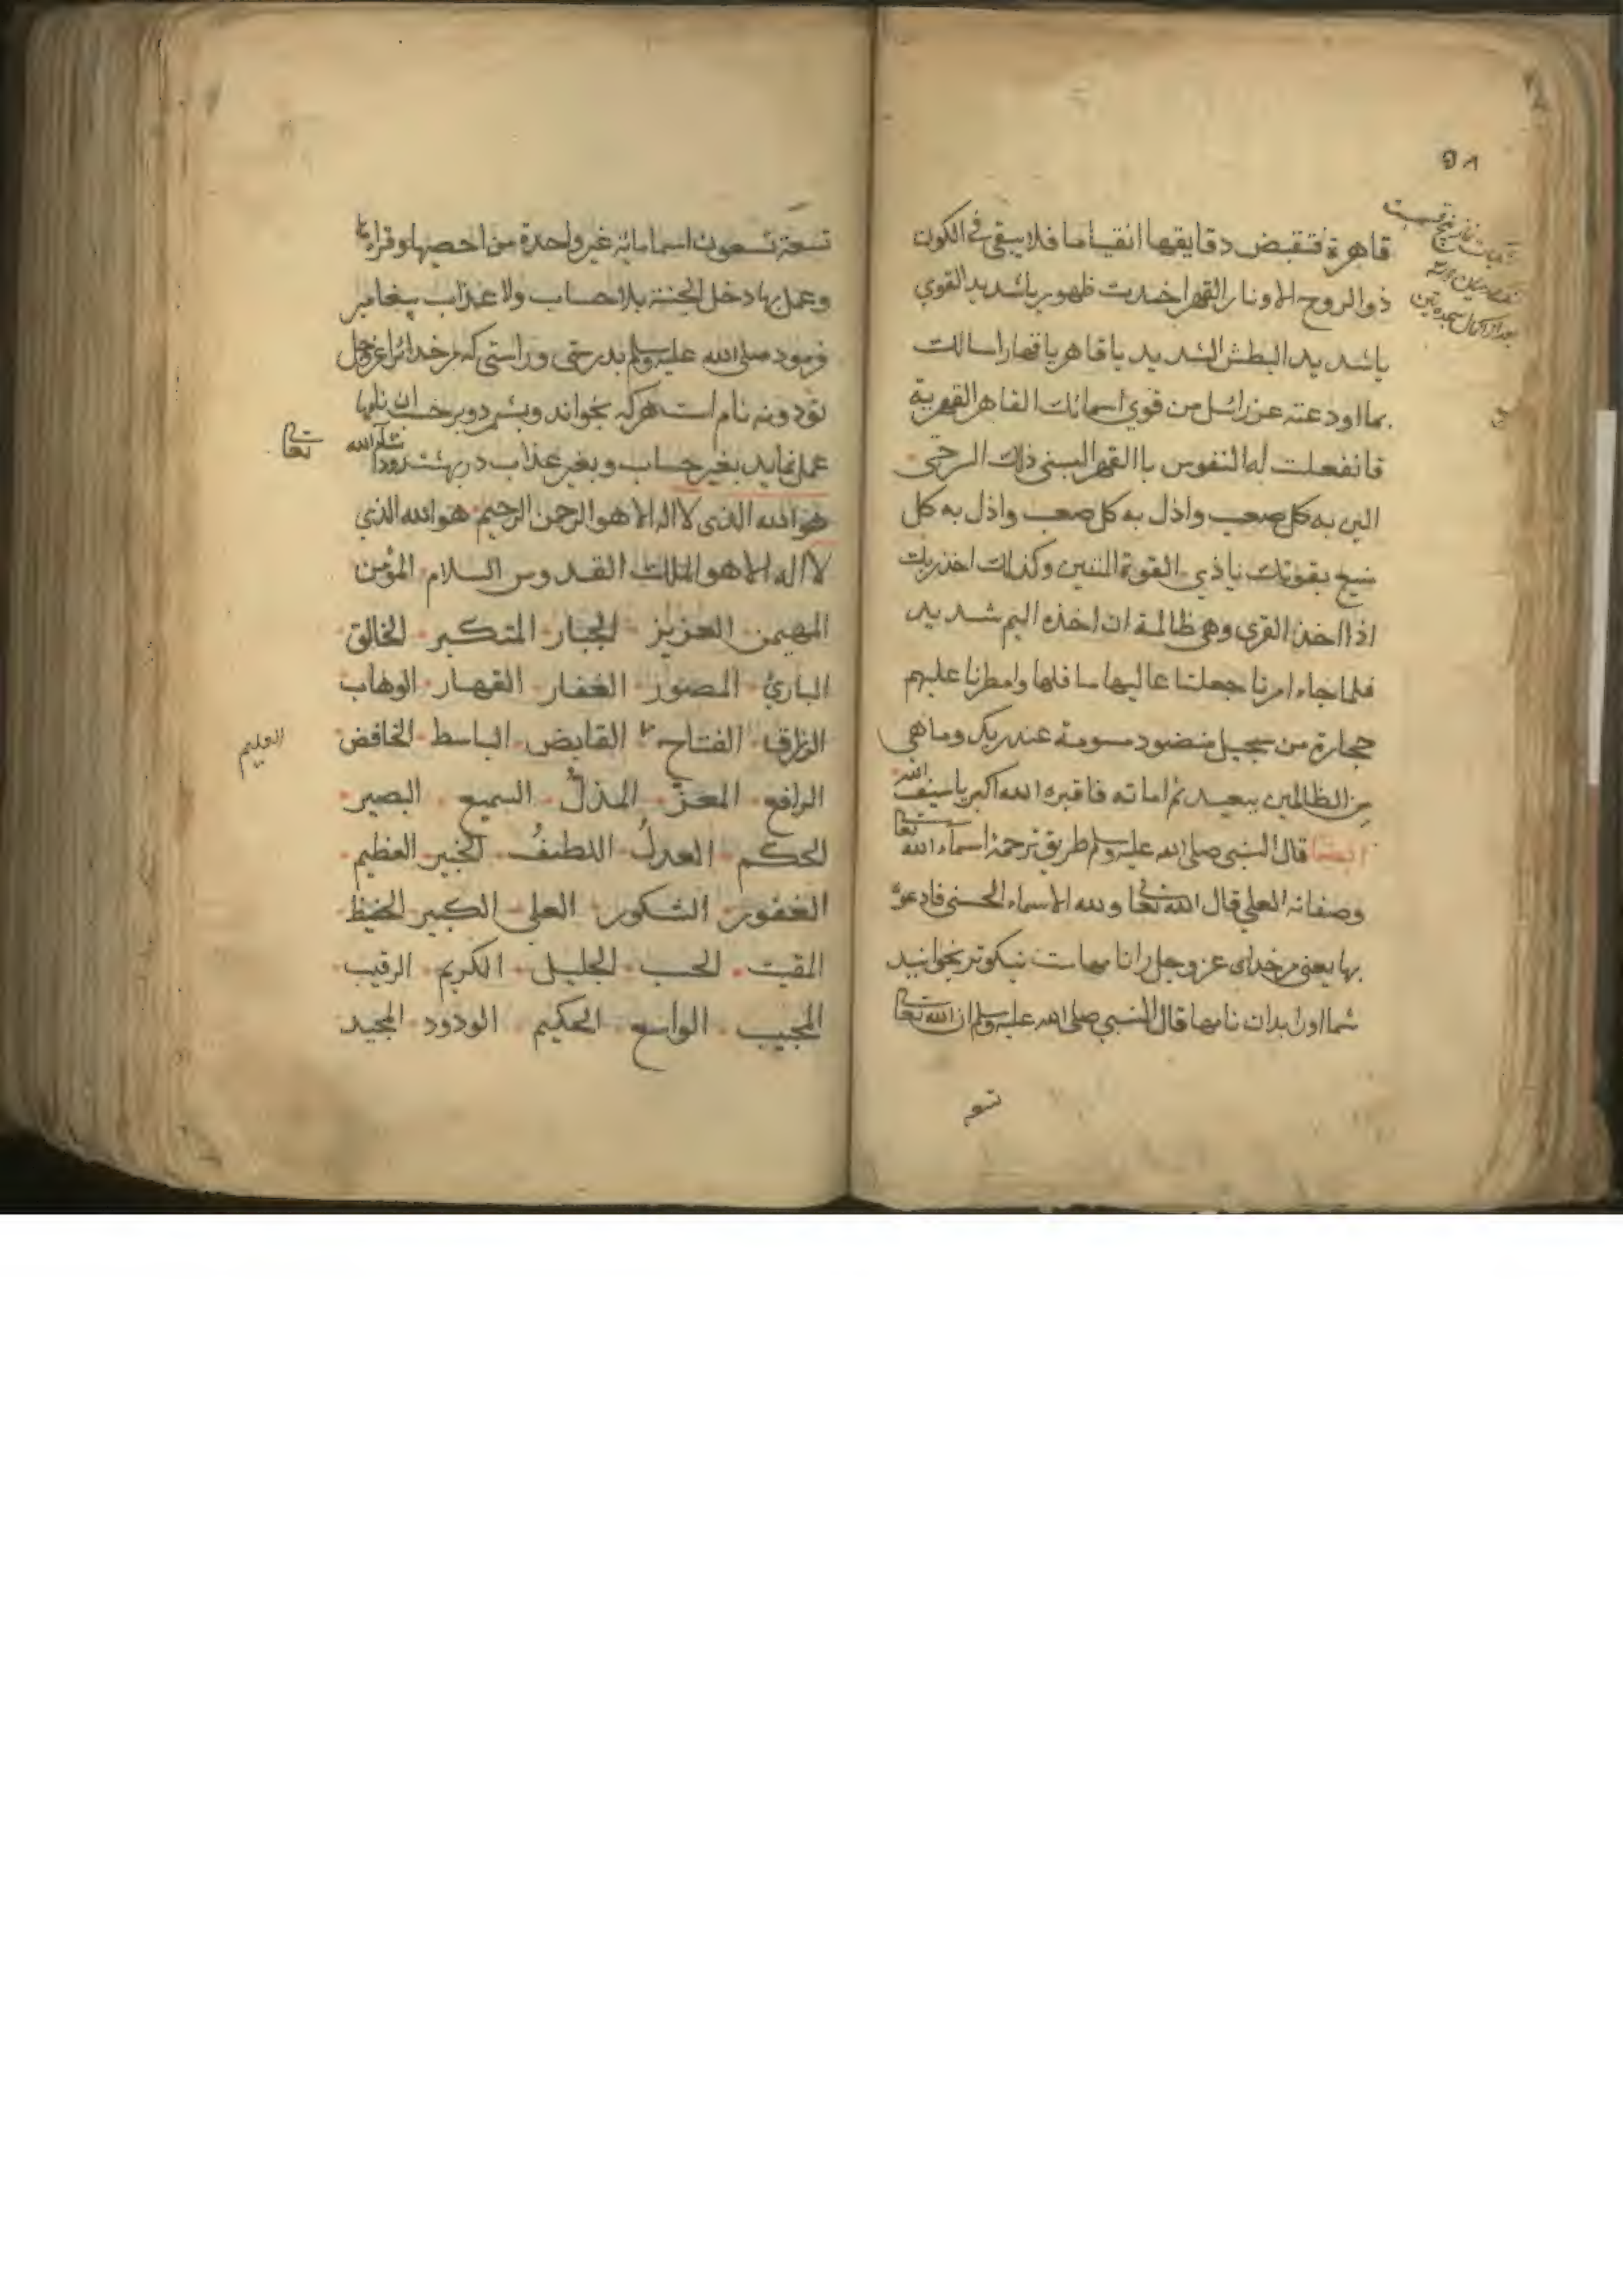 ٥٨
قاهرة فتقبض دقايقها انقباضا فلا يبقى في الكون
ذو الروح الا ونار القهر اخمدت ظهوره يا شديد القوي
يا شديد البطش الشديد يا قاهر يا قهار اسالك
بما اودعته عزرائيل من قوي اسمائك القاهر القهرية
فانفعلت له النفوس با القهر البسني ذلك الرحتى
الين به كل صعب واذل به كل صعب واذل به كل
منيع بقوتك يا ذي القوة المتين وكذلك اخذ ربك
اذا اخذ القرى وهي ظالمة ان اخذه اليم شديد
فلما جاء امرنا جعلنا عاليها سافلها وامطرنا عليهم
حجارة من سجيل منضود مسومة عند ربك وما هي
من الظالمين ببعيد ثم اماته فاقبره الله اكبر يا سيف الله
ايضا قال النبي صلى الله عليه وسلم طريق ترجمة اسماء الله تعالى
وصفاته العلي قال الله تعالى ولله الاسماء الحسنى فادعوه
بها يعني مر خداى عز وجل را نامهاست نيكوتر بخوانيد
شما اورا بدان نامها قال النبي صلى الله عليه وسلم ان الله تعالى
تسعة
تسعة تسعون اسما مائة غير واحدة من احصيها وقراء
وعمل بها دخل الجنة بلا حساب ولا عذاب پيغامبر
فرمود صلى الله عليه وسلم بدرستى وراستى كه مر خدائرا عز وجل
نود ونه نام است هر كه بخواند وبشمرد وبر نامها
عمل نمايد بغير حساب وبغير عذاب در بهشت رود ان شاء الله تعالى
هو الله الذى لا اله الا هو الرحمن الرحيم هو الله الذي
لا اله الا هو الملك القدوس السلام المؤمن
المهيمن العزيز الجبار المتكبر الخالق
البارئ المصور الغفار القهار الوهاب
الرزاق الفتاح القابض الباسط الخافض
العليم
الرافع المعز المذل السميع البصير
الحكم العدل اللطيف الخبير العظيم
الغفور الشكور العلي الكبير الحفيظ
المقيت الحسيب الجليل الكريم الرقيب
المجيب الواسع الحكيم الودود المجيد